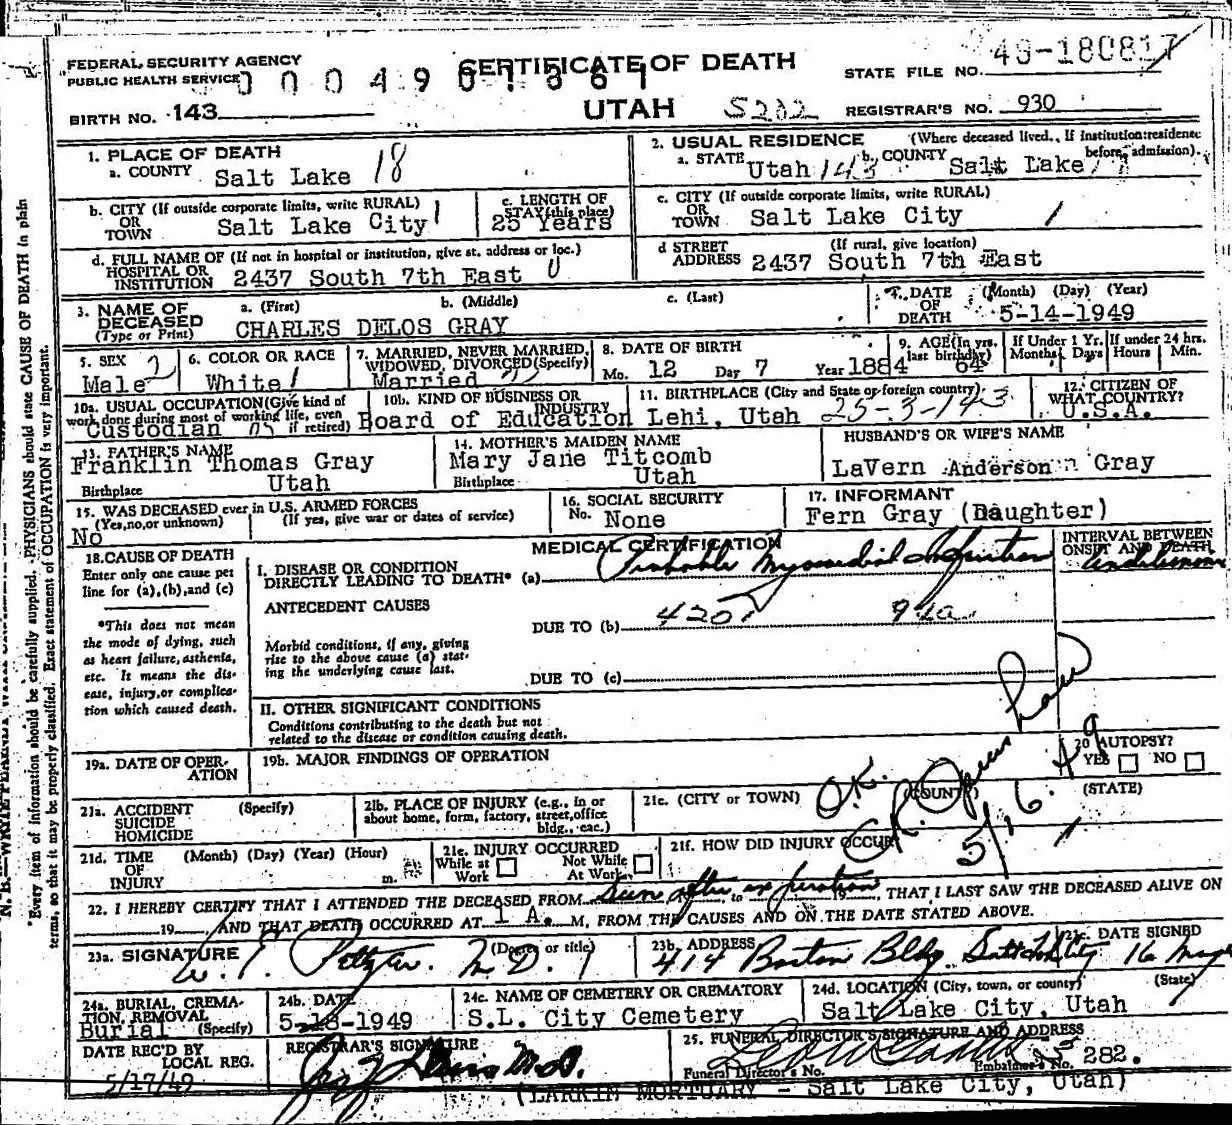 FEDERAL SECURITY AGENCY
PUBLIC HEALTH SERVICE
CERTIFICATE OF DEATH
UTAH S202
STATE FILE NO. 49-180817
BIRTH NO. 143
REGISTRAR'S NO. 930
1. PLACE OF DEATH
a. COUNTY Salt Lake 18
2. USUAL RESIDENCE (Where deceased lived., If institution:residence before, admission).
a. STATE Utah 143 b. COUNTY Salt Lake
b. CITY (If outside corporate limits, write RURAL)
OR TOWN Salt Lake City 1
c. LENGTH OF STAY (this place)
25 Years
c. CITY (If outside corporate limits, write RURAL)
OR TOWN Salt Lake City 1
d. FULL NAME OF (If not in hospital or institution, give st. address or loc.)
HOSPITAL OR INSTITUTION 2437 South 7th East 0
d STREET ADDRESS (If rural, give location)
2437 South 7th East
3. NAME OF DECEASED (Type or Print)
a. (First) b. (Middle) c. (Last)
CHARLES DELOS GRAY
4. DATE OF DEATH (Month) (Day) (Year)
5-14-1949
5. SEX
Male
6. COLOR OR RACE
White 1
7. MARRIED, NEVER MARRIED, WIDOWED, DIVORCED (Specify)
Married
8. DATE OF BIRTH
Mo. 12 Day 7 Year 1884
9. AGE (In yrs. last birthday)
64
If Under 1 Yr. Months Days
If under 24 hrs. Hours Min.
10a. USUAL OCCUPATION (Give kind of work done during most of working life, even if retired)
Custodian
10b. KIND OF BUSINESS OR INDUSTRY
Board of Education
11. BIRTHPLACE (City and State or foreign country)
Lehi, Utah 25-3-143
12. CITIZEN OF WHAT COUNTRY?
U.S.A.
13. FATHER'S NAME
Franklin Thomas Gray
Birthplace Utah
14. MOTHER'S MAIDEN NAME
Mary Jane Titcomb
Birthplace Utah
HUSBAND'S OR WIFE'S NAME
LaVern Anderson Gray
15. WAS DECEASED ever in U.S. ARMED FORCES
(Yes,no,or unknown) (If yes, give war or dates of service)
No
16. SOCIAL SECURITY
No. None
17. INFORMANT
Fern Gray (Daughter)
18. CAUSE OF DEATH
Enter only one cause per line for (a),(b),and (c)
*This does not mean the mode of dying, such as heart failure, asthenia, etc. It means the disease, injury, or complication which caused death.
MEDICAL CERTIFICATION
INTERVAL BETWEEN ONSET AND DEATH
I. DISEASE OR CONDITION
DIRECTLY LEADING TO DEATH* (a) Probable Myocardial Infarction
ANTECEDENT CAUSES
DUE TO (b) 4201 94a
Morbid conditions, if any, giving rise to the above cause (a) stating the underlying cause last.
DUE TO (c)
II. OTHER SIGNIFICANT CONDITIONS
Conditions contributing to the death but not related to the disease or condition causing death.
19a. DATE OF OPERATION
19b. MAJOR FINDINGS OF OPERATION
20 AUTOPSY?
YES NO
21a. ACCIDENT SUICIDE HOMICIDE (Specify)
21b. PLACE OF INJURY (e.g., in or about home, form, factory, street, office bldg., eac.)
21c. (CITY or TOWN) (COUNTY) (STATE)
O.K. 5/16/49
21d. TIME OF INJURY (Month) (Day) (Year) (Hour) m.
21e. INJURY OCCURRED
While at Work Not While At Work
21f. HOW DID INJURY OCCUR
22. I HEREBY CERTIFY THAT I ATTENDED THE DECEASED FROM Seen after expiration, to 19, THAT I LAST SAW THE DECEASED ALIVE ON
19, AND THAT DEATH OCCURRED AT 1 A. M, FROM THE CAUSES AND ON THE DATE STATED ABOVE.
23a. SIGNATURE (Degree or title)
M.D.
23b. ADDRESS
414 Boston Bldg. Salt Lake City
23c. DATE SIGNED
16 May
24a. BURIAL, CREMATION, REMOVAL (Specify)
Burial
24b. DATE
5-18-1949
24c. NAME OF CEMETERY OR CREMATORY
S.L. City Cemetery
24d. LOCATION (City, town, or county) (State)
Salt Lake City, Utah
DATE REC'D BY LOCAL REG.
5/17/49
REGISTRAR'S SIGNATURE
25. FUNERAL DIRECTOR'S SIGNATURE AND ADDRESS
Funeral Director's No. Embalmer's No. 282.
(LARKIN MORTUARY - Salt Lake City, Utah)
*Every item of information should be carefully supplied. PHYSICIANS should state CAUSE OF DEATH in plain
terms, so that it may be properly classified. Exact statement of OCCUPATION is very important.